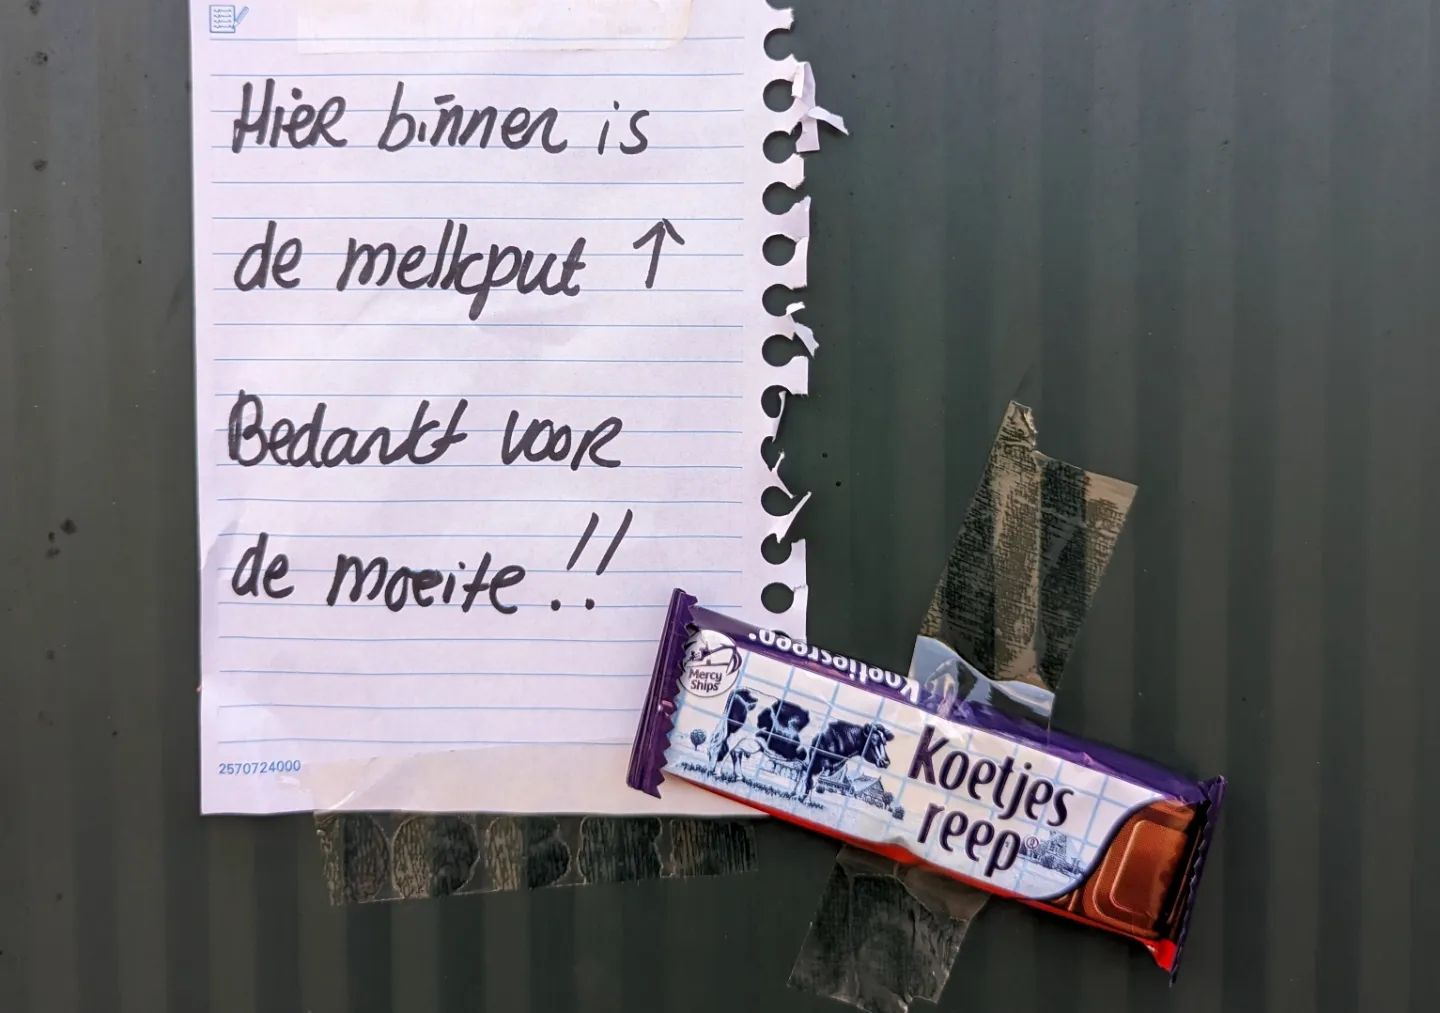 Hier binnen is
de melkput ↑
Bedankt voor
de moeite!!
2570724000
Koetjesreep
Mercy
Ships
Koetjes
reep®